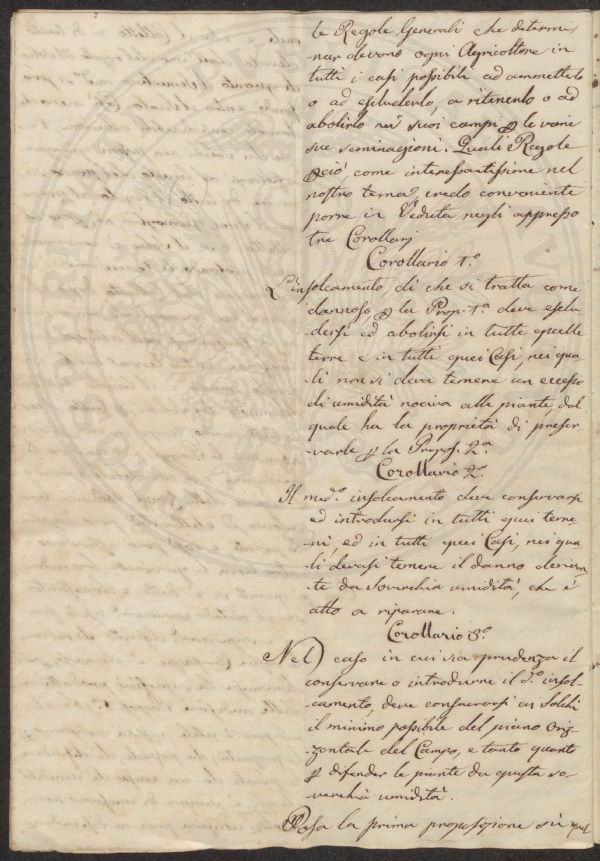 le Regole Generali che determi
nar devono ogni Agricoltore in
tutti i casi possibili ad ammetterlo
o ad escluderlo, a ritenerlo o ad
abolirlo nei suoi campi p le varie
sue seminagioni. Quali Regole
p ciò come interessantissime nel
nostro tema credo conveniente
porre in Veduta negli appresso
tre Corollarj
Corollario 1.º
L'insolcamento, di che si tratta come
dannoso p la Prop. 1.ª deve esclu
dersi ed abolirsi in tutte quelle
terre e in tutti quei Casi, nei qua
li non si deva temere un eccesso
di umidità nociva alle piante, dal
quale ha la proprietà di preser
varle p la Propos. 2.ª
Corollario 2.º
Il med.º insolcamento deve conservarsi
ed introdursi in tutti quei terre
ni, ed in tutti quei Casi, nei qua
li devasi temere il danno derivan
te da soverchia umidità, che è
atto a riparare.
Corollario 3.º
Nel caso in cui sia prudenza il
conservare o introdurre il d.º insol
camento, deve consacrarsi ai Solchi
il minimo possibile del piano Oriz
zontale del Campo, e tanto quanto
p difender le piante da questa so
verchia umidità.
Posa la prima proposizione su quel